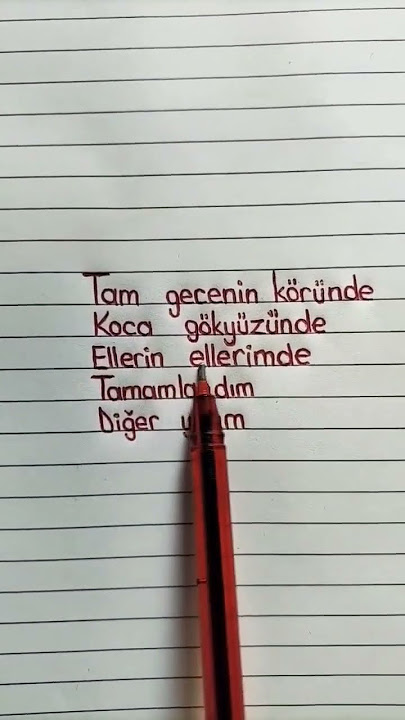 Tam gecenin köründe
Koca gökyüzünde
Ellerin ellerimde
Tamamlandım
Diğer